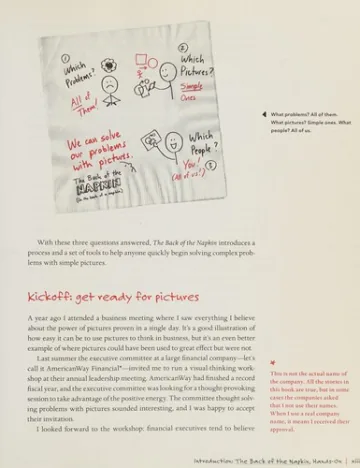 ① Which Problems?
All of Them!
② Which Pictures?
Simple Ones
We can solve our problems with pictures.
Which People?
You! (All of us!) ③
The Back of the
NAPKIN
(on the back of a napkin)
◀ What problems? All of them.
What pictures? Simple ones. What
people? All of us.
With these three questions answered, The Back of the Napkin introduces a
process and a set of tools to help anyone quickly begin solving complex prob-
lems with simple pictures.
kickoff: get ready for pictures
A year ago I attended a business meeting where I saw everything I believe
about the power of pictures proven in a single day. It's a good illustration of
how easy it can be to use pictures to think in business, but it's an even better
example of where pictures could have been used to great effect but were not.
Last summer the executive committee at a large financial company—let's
call it AmericanWay Financial*—invited me to run a visual-thinking work-
shop at their annual leadership meeting. AmericanWay had finished a record
fiscal year, and the executive committee was looking for a thought-provoking
session to take advantage of the positive energy. The committee thought solv-
ing problems with pictures sounded interesting, and I was happy to accept
their invitation.
I looked forward to the workshop: financial executives tend to believe
*
This is not the actual name of
the company. All the stories in
this book are true, but in some
cases the companies asked
that I not use their names.
When I use a real company
name, it means I received their
approval.
Introduction: The Back of the Napkin, Hands-On | xiii